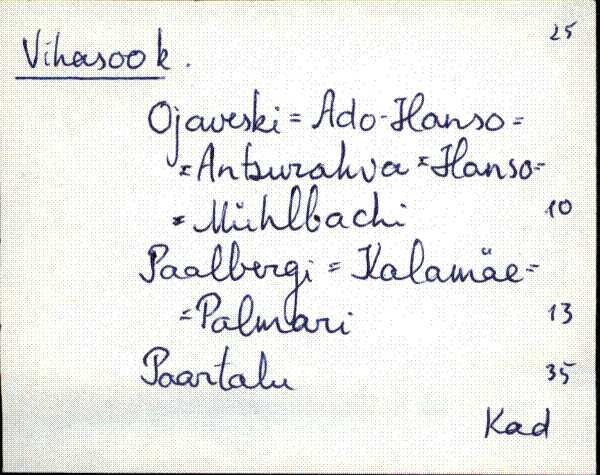 25
Vihasook.
Ojaveski = Ado-Hanso =
= Antsurahva = Hanso =
= Mühlbachi 10
Paalbergi = Kalamäe =
= Palmari 13
Paartalu 35
Kad